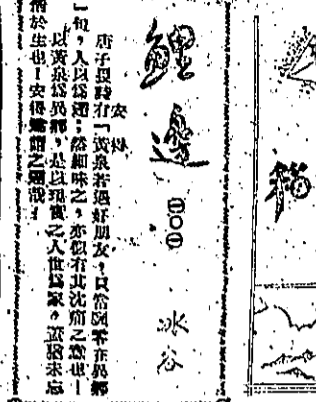 鯉邊
冰谷
安得
唐子畏詩有「黃泉若遇好朋友,只當飄零在異鄉
」一句,人以為達;然細味之,亦似有其沈痛之意也!
以黃泉為異鄉,是以現實之人世為家,蓋猶未忘
情於生也!安得謂之達哉!